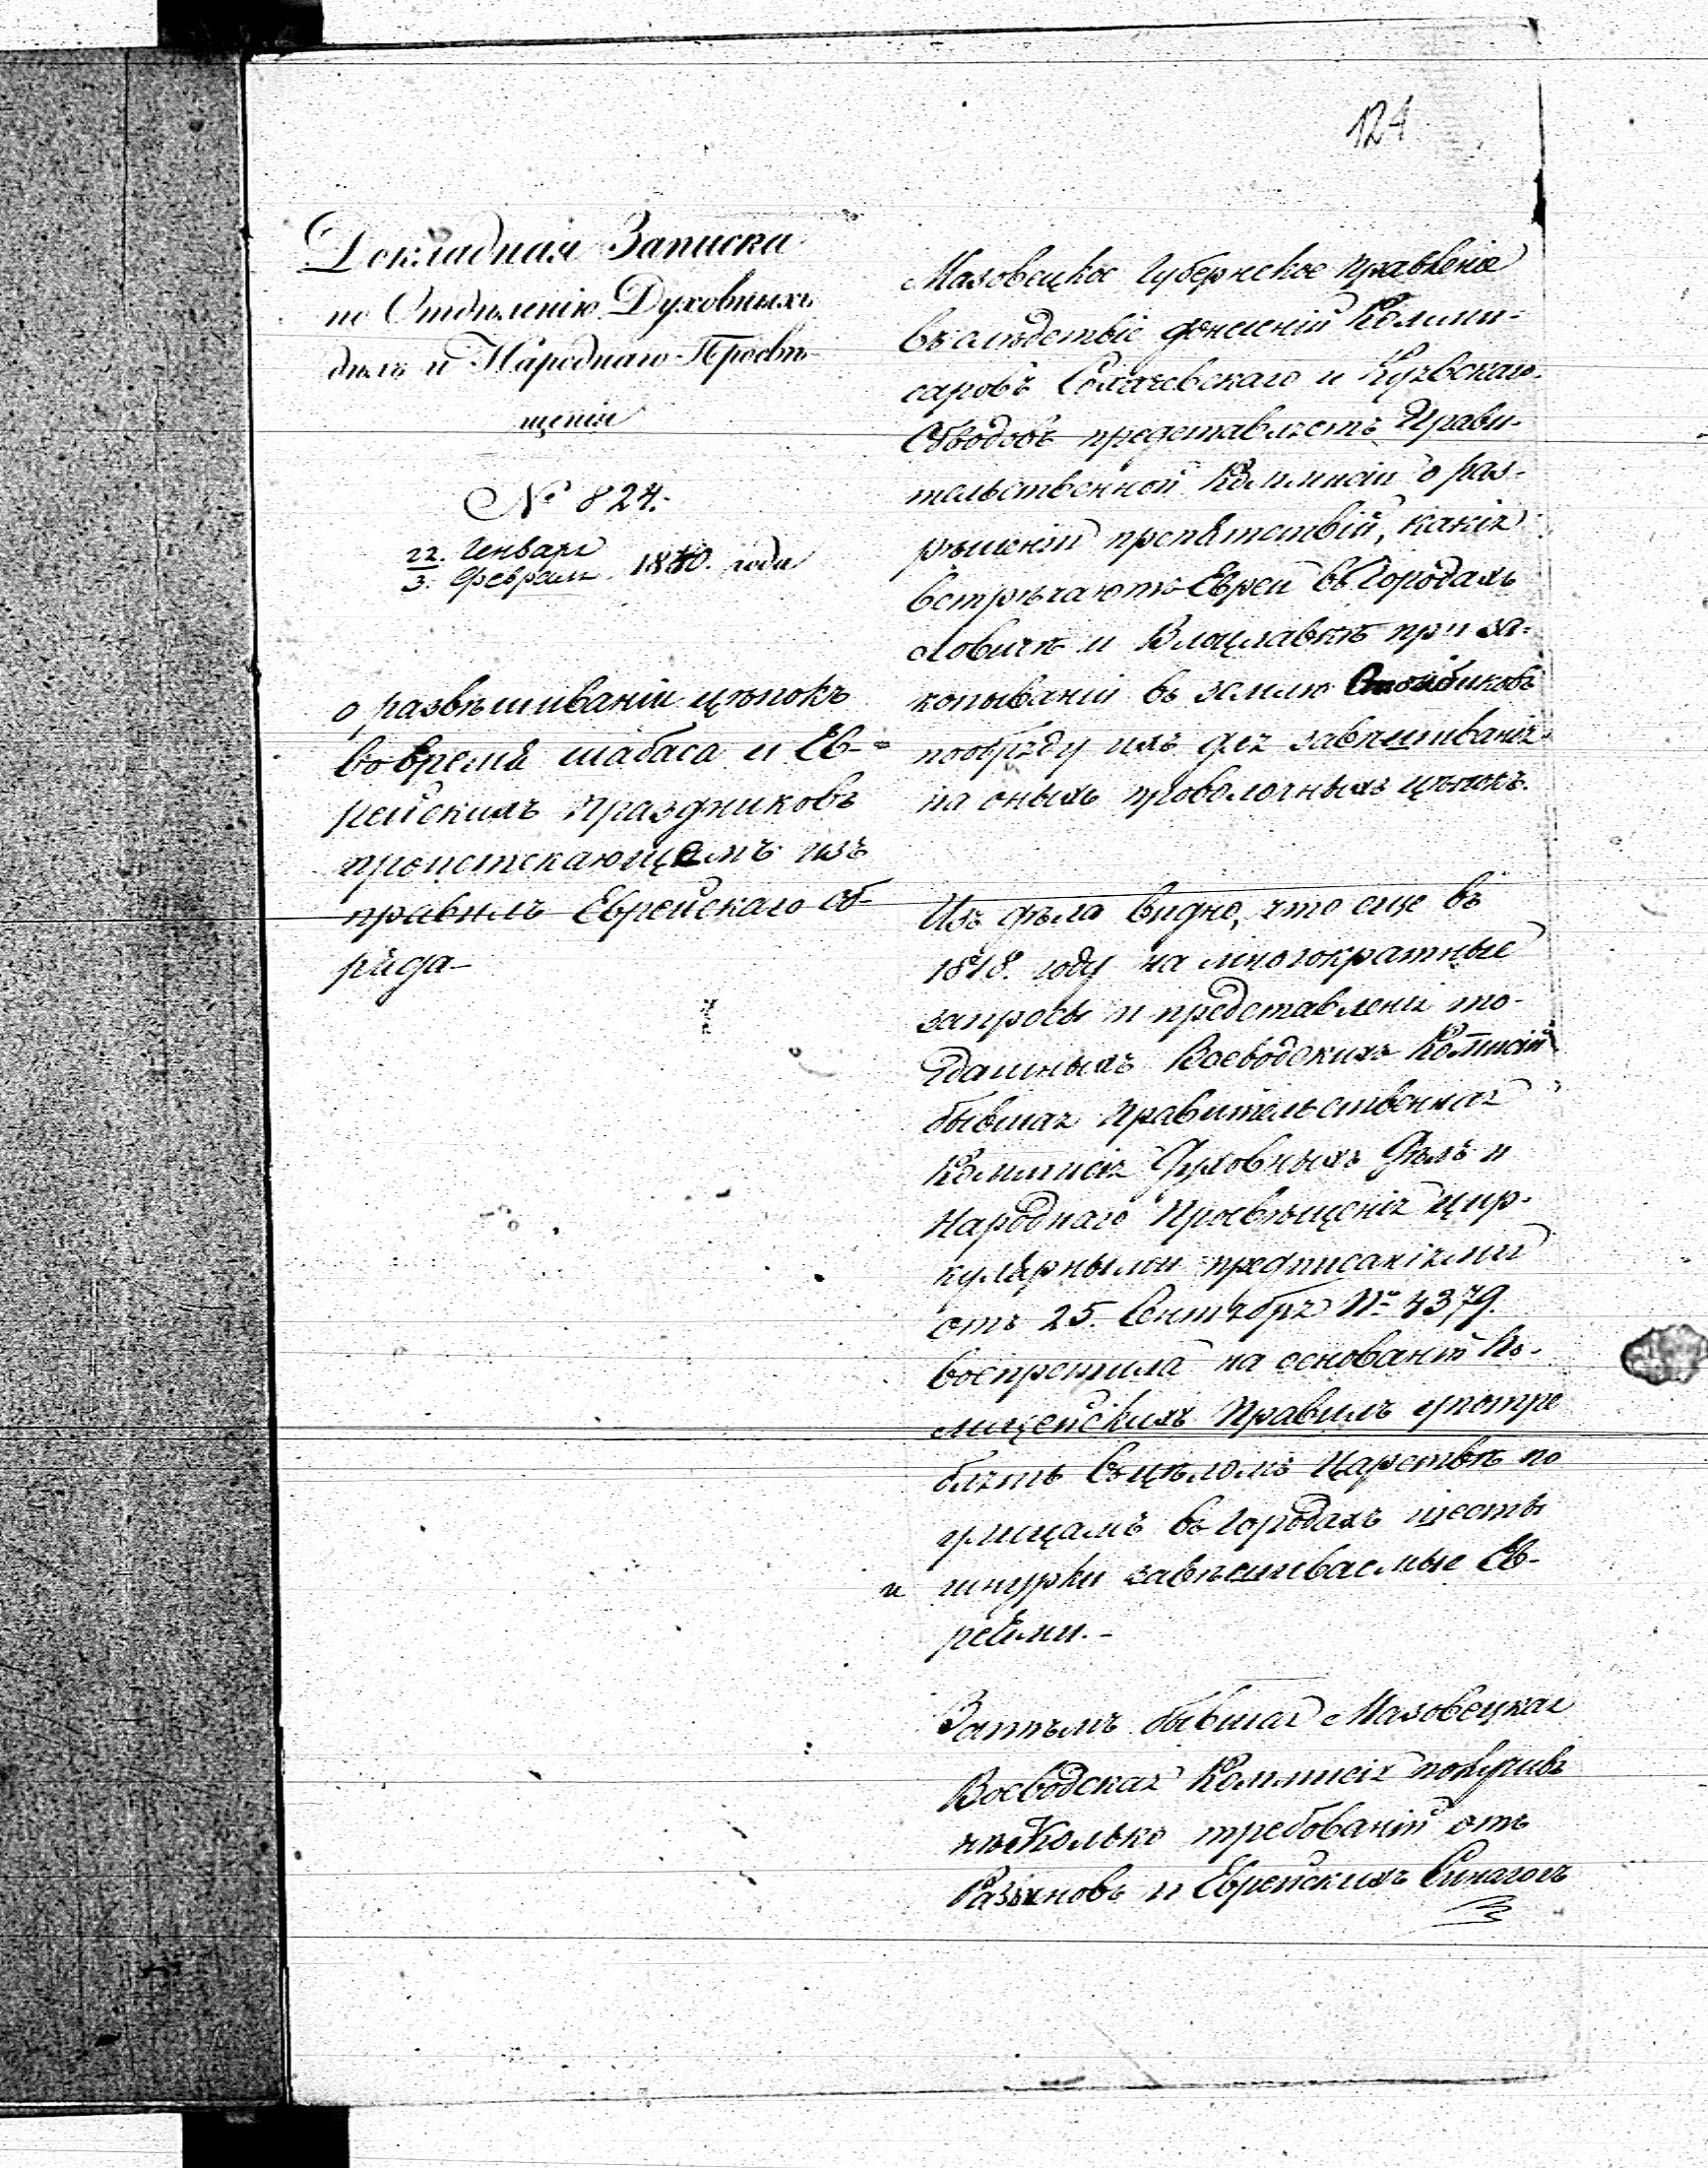 124
Докладная Записка
по Отдѣленію Духовныхъ
дѣлъ и Народнаго Просвѣ-
щенія
№ 824.
22. Генваря
3. Февраля 1840. года
о развѣшиваніи цѣпокъ
во время шабаса и Ев-
рейскихъ праздниковъ
проистекающемъ изъ
правилъ Еврейскаго об-
ряда-
Мазовецкое Губернское правленіе
въ слѣдствіе донесеній Комми-
саровъ Сохачевскаго и Куявскаго
Обводовъ представляетъ Прави-
тельственной Коммисіи о раз-
рѣшеніи препятствій, какія
встрѣчаютъ Евреи въ Городахъ
Ловичѣ и Влацлавкѣ при за-
копываніи въ землю Столбиковъ
по обряду ихъ для завѣшиванія
на оныхъ проволочныхъ цѣпокъ.
Изъ дѣла видно, что еще въ
1818. году на многократные
запросы и представленія то-
гдашныхъ Воеводскихъ Коммисій
бывшая Правительственная
Коммисія Духовныхъ Дѣлъ и
Народнаго Просвѣщенія цир-
кулярными предписаніями
отъ 25. Сентября № 4379.
воспретила на основаніи По-
лицейскихъ Правилъ употре
блять въ цѣломъ Царствѣ по
улицамъ въ городахъ шесты
и шнурки завѣшиваемые Ев-
реями.-
Затѣмъ бывшая Мазовецкая
Воеводская Коммисія получивъ
нѣсколько требованій отъ
Раввиновъ и Еврейскихъ Синагогъ